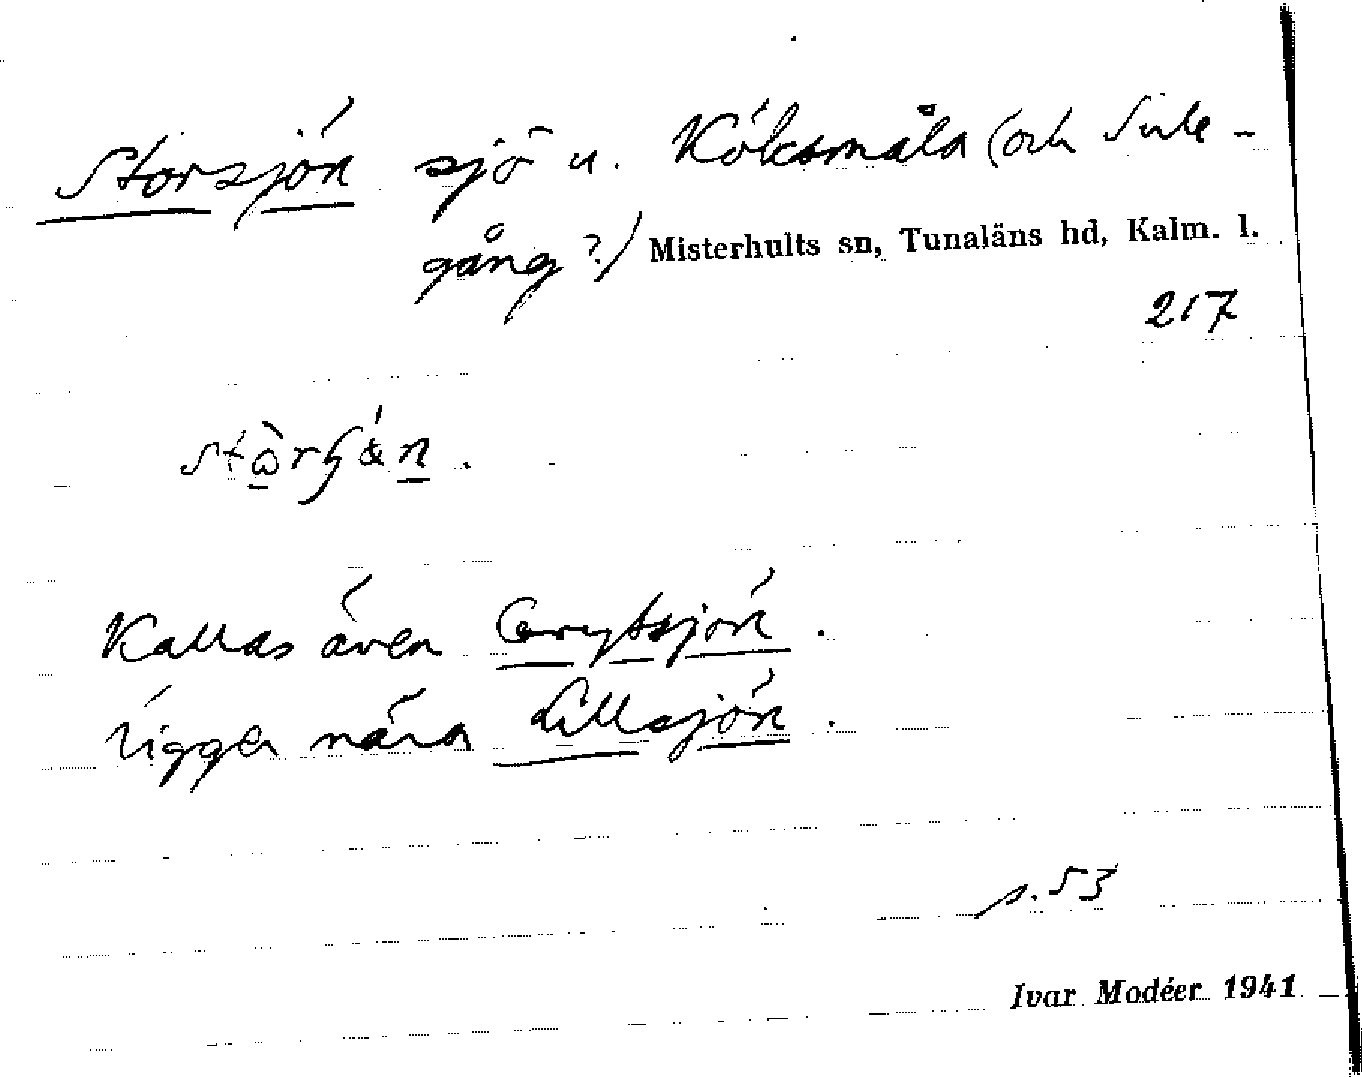 Storsjön sjö u. Köksmåla (och
gång?) Misterhults sn, Tunaläns hd, Kalm. l.
217
Kallas även Grytsjön.
Ligger nära Lillsjön.
s. 53
Ivar Modéer 1941